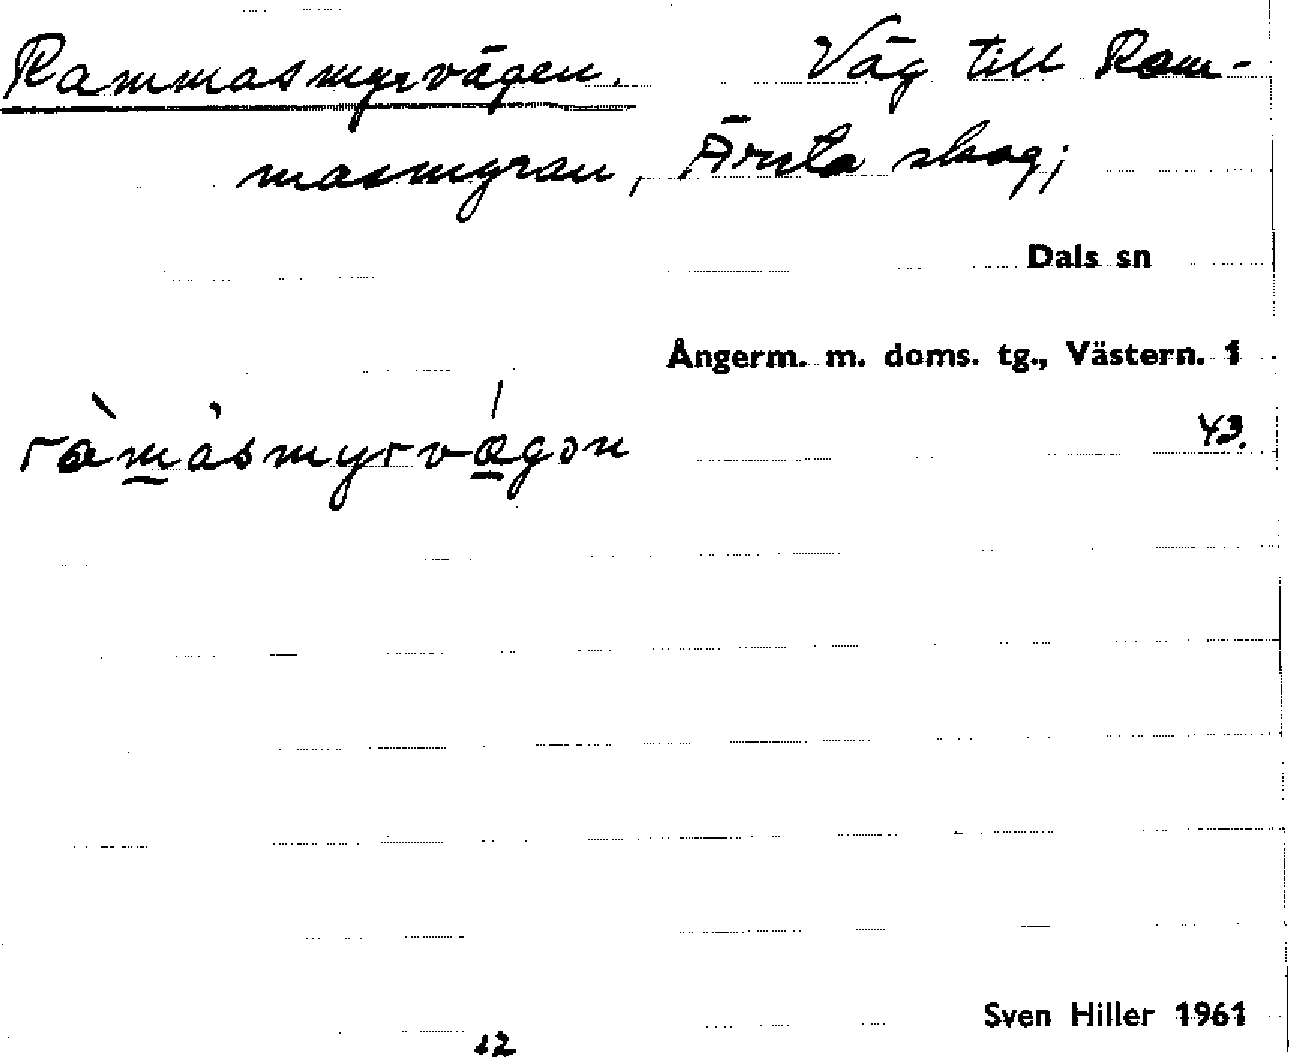 Rammasmyrvägen. Väg till Ram-
masmyran, Ärsta skog;
Dals sn
Ångerm. m. doms. tg., Västern. 1
ràmàsmyrvǽgən 43.
Sven Hiller 1961
12